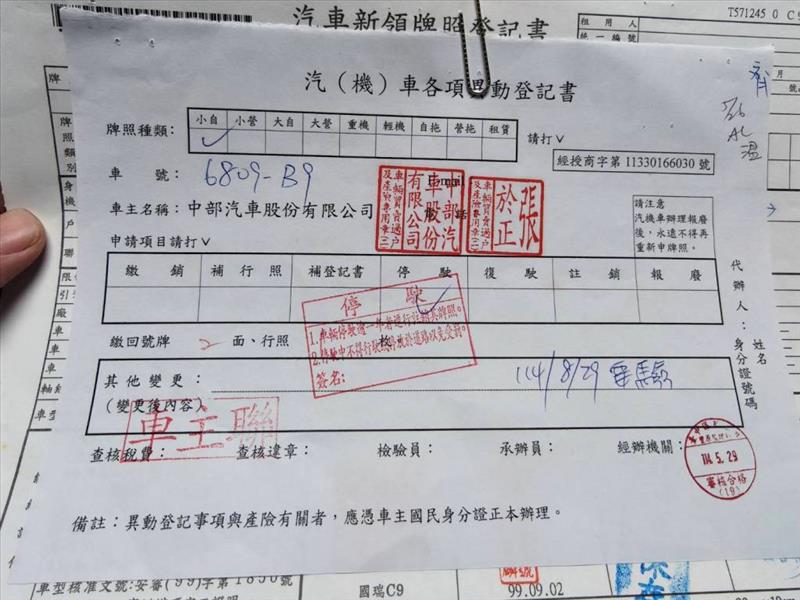 汽車新領牌照登記書
T571245 0
租用人
統一編號
汽（機）車各項異動登記書
牌照種類：
小自 小營 大自 大營 重機 輕機 自拖 營拖 租賃
請打∨
經授商字第 11330166030 號
5/26
AC
溫
車號：
6809-B9
車主名稱：中部汽車股份有限公司
中部汽
車股份
有限公司
車輛買賣過戶
及產險專用章(二)
張
於正
車輛買賣過戶
及產險專用章(二)
請注意
汽機車辦理報廢
後，永遠不得再
重新申牌照。
申請項目請打∨
繳銷 補行照 補登記書 停駛 復駛 註銷 報廢
代辦人：
姓名
身分證號碼
停駛
簽名：
繳回號牌 2 面、行照 枚
其他變更：
(變更後內容)
114/8/29 單驗
車主聯
查核稅費： 查核違章： 檢驗員： 承辦員： 經辦機關：
114. 5. 29
審核合格
(19)
備註：異動登記事項與產險有關者，應憑車主國民身分證正本辦理。
車型核准文號：安審(99)字第1850號
國瑞C9
99.09.02